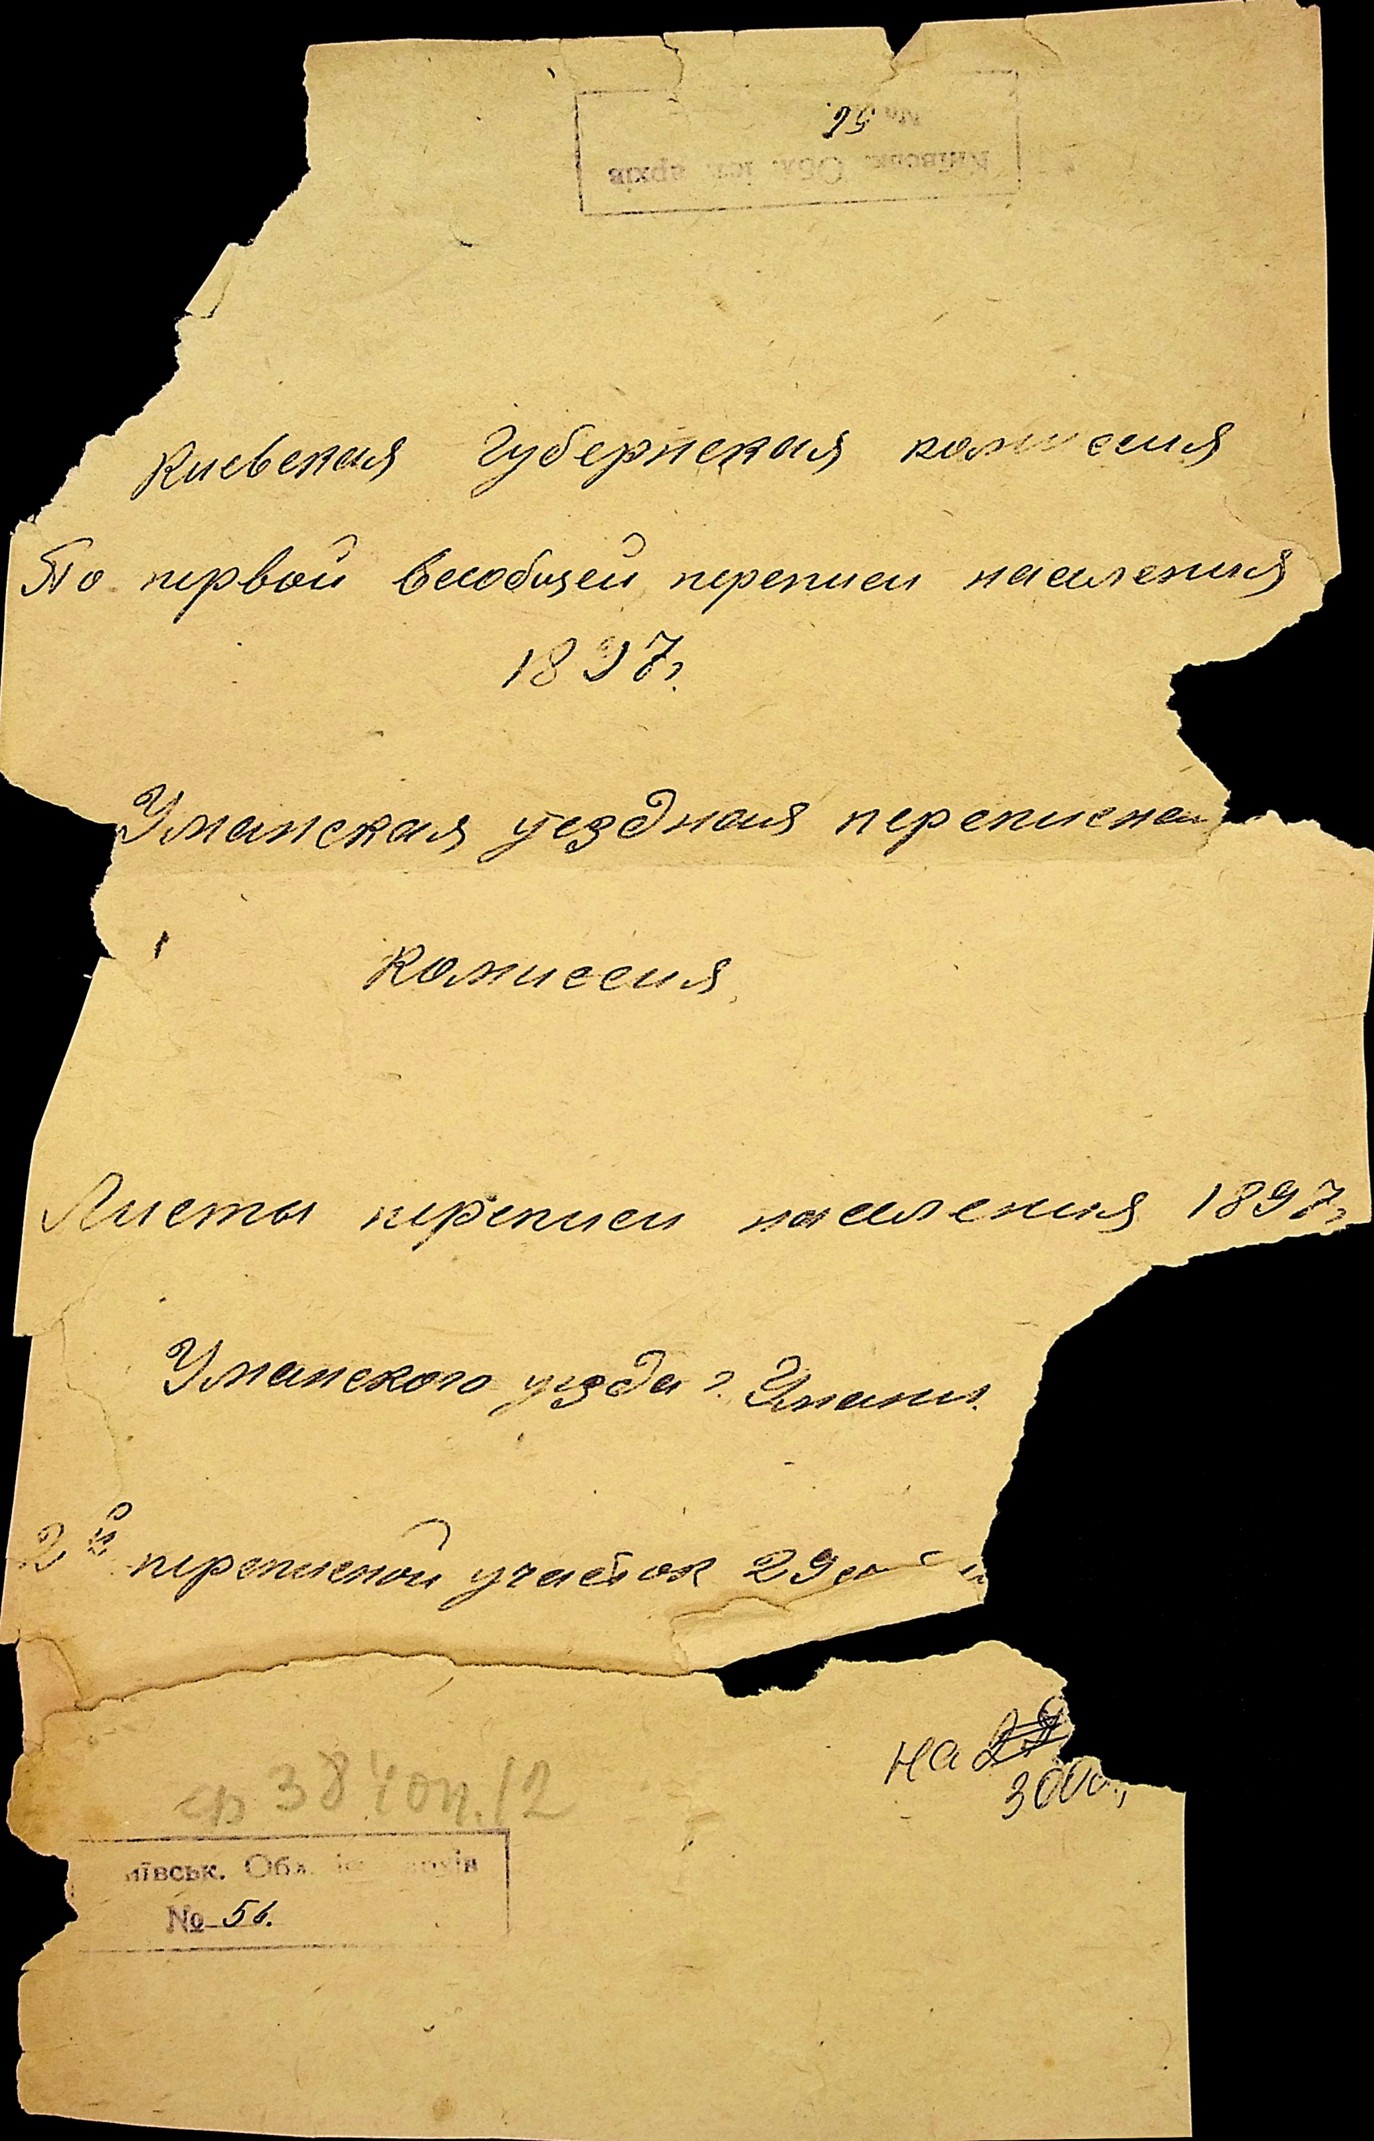 56.
Київськ. Обл. іст. архів
Киевская Губернская комиссия
По первой всеобщей переписи населения
1897г.
Уманская уездная переписная
Комиссия
Листы переписи населения 1897г
Уманского уезда г. Умани.
2й переписной участок 29
на
300
ф 384 оп. 12
иївськ. Обл. архів
№ 56.